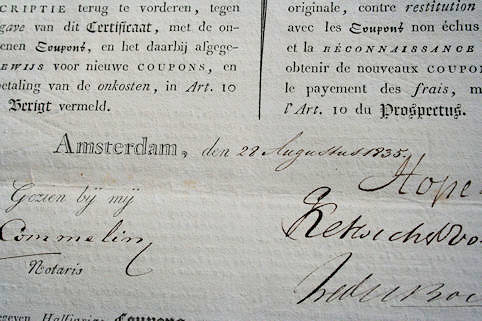 CRIPTIE terug te vorderen, tegen
gave van dit Certificaat, met de on-
enen Coupons, en het daarbij afgege-
EWIJS voor nieuwe COUPONS, en
etaling van de onkosten, in Art. 10
Berigt vermeld.
originale, contre restitution
avec les Coupons non échus
et la RÉCONNAISSANCE
obtenir de nouveaux COUPON
le payement des frais, m
l'Art. 10 du Prospectus.
Amsterdam, den 28 Augustus 1835.
Hope
Gezien bij mij
Ketwich & Vo
Commelin
Notaris
geven Halfjarige Coupons